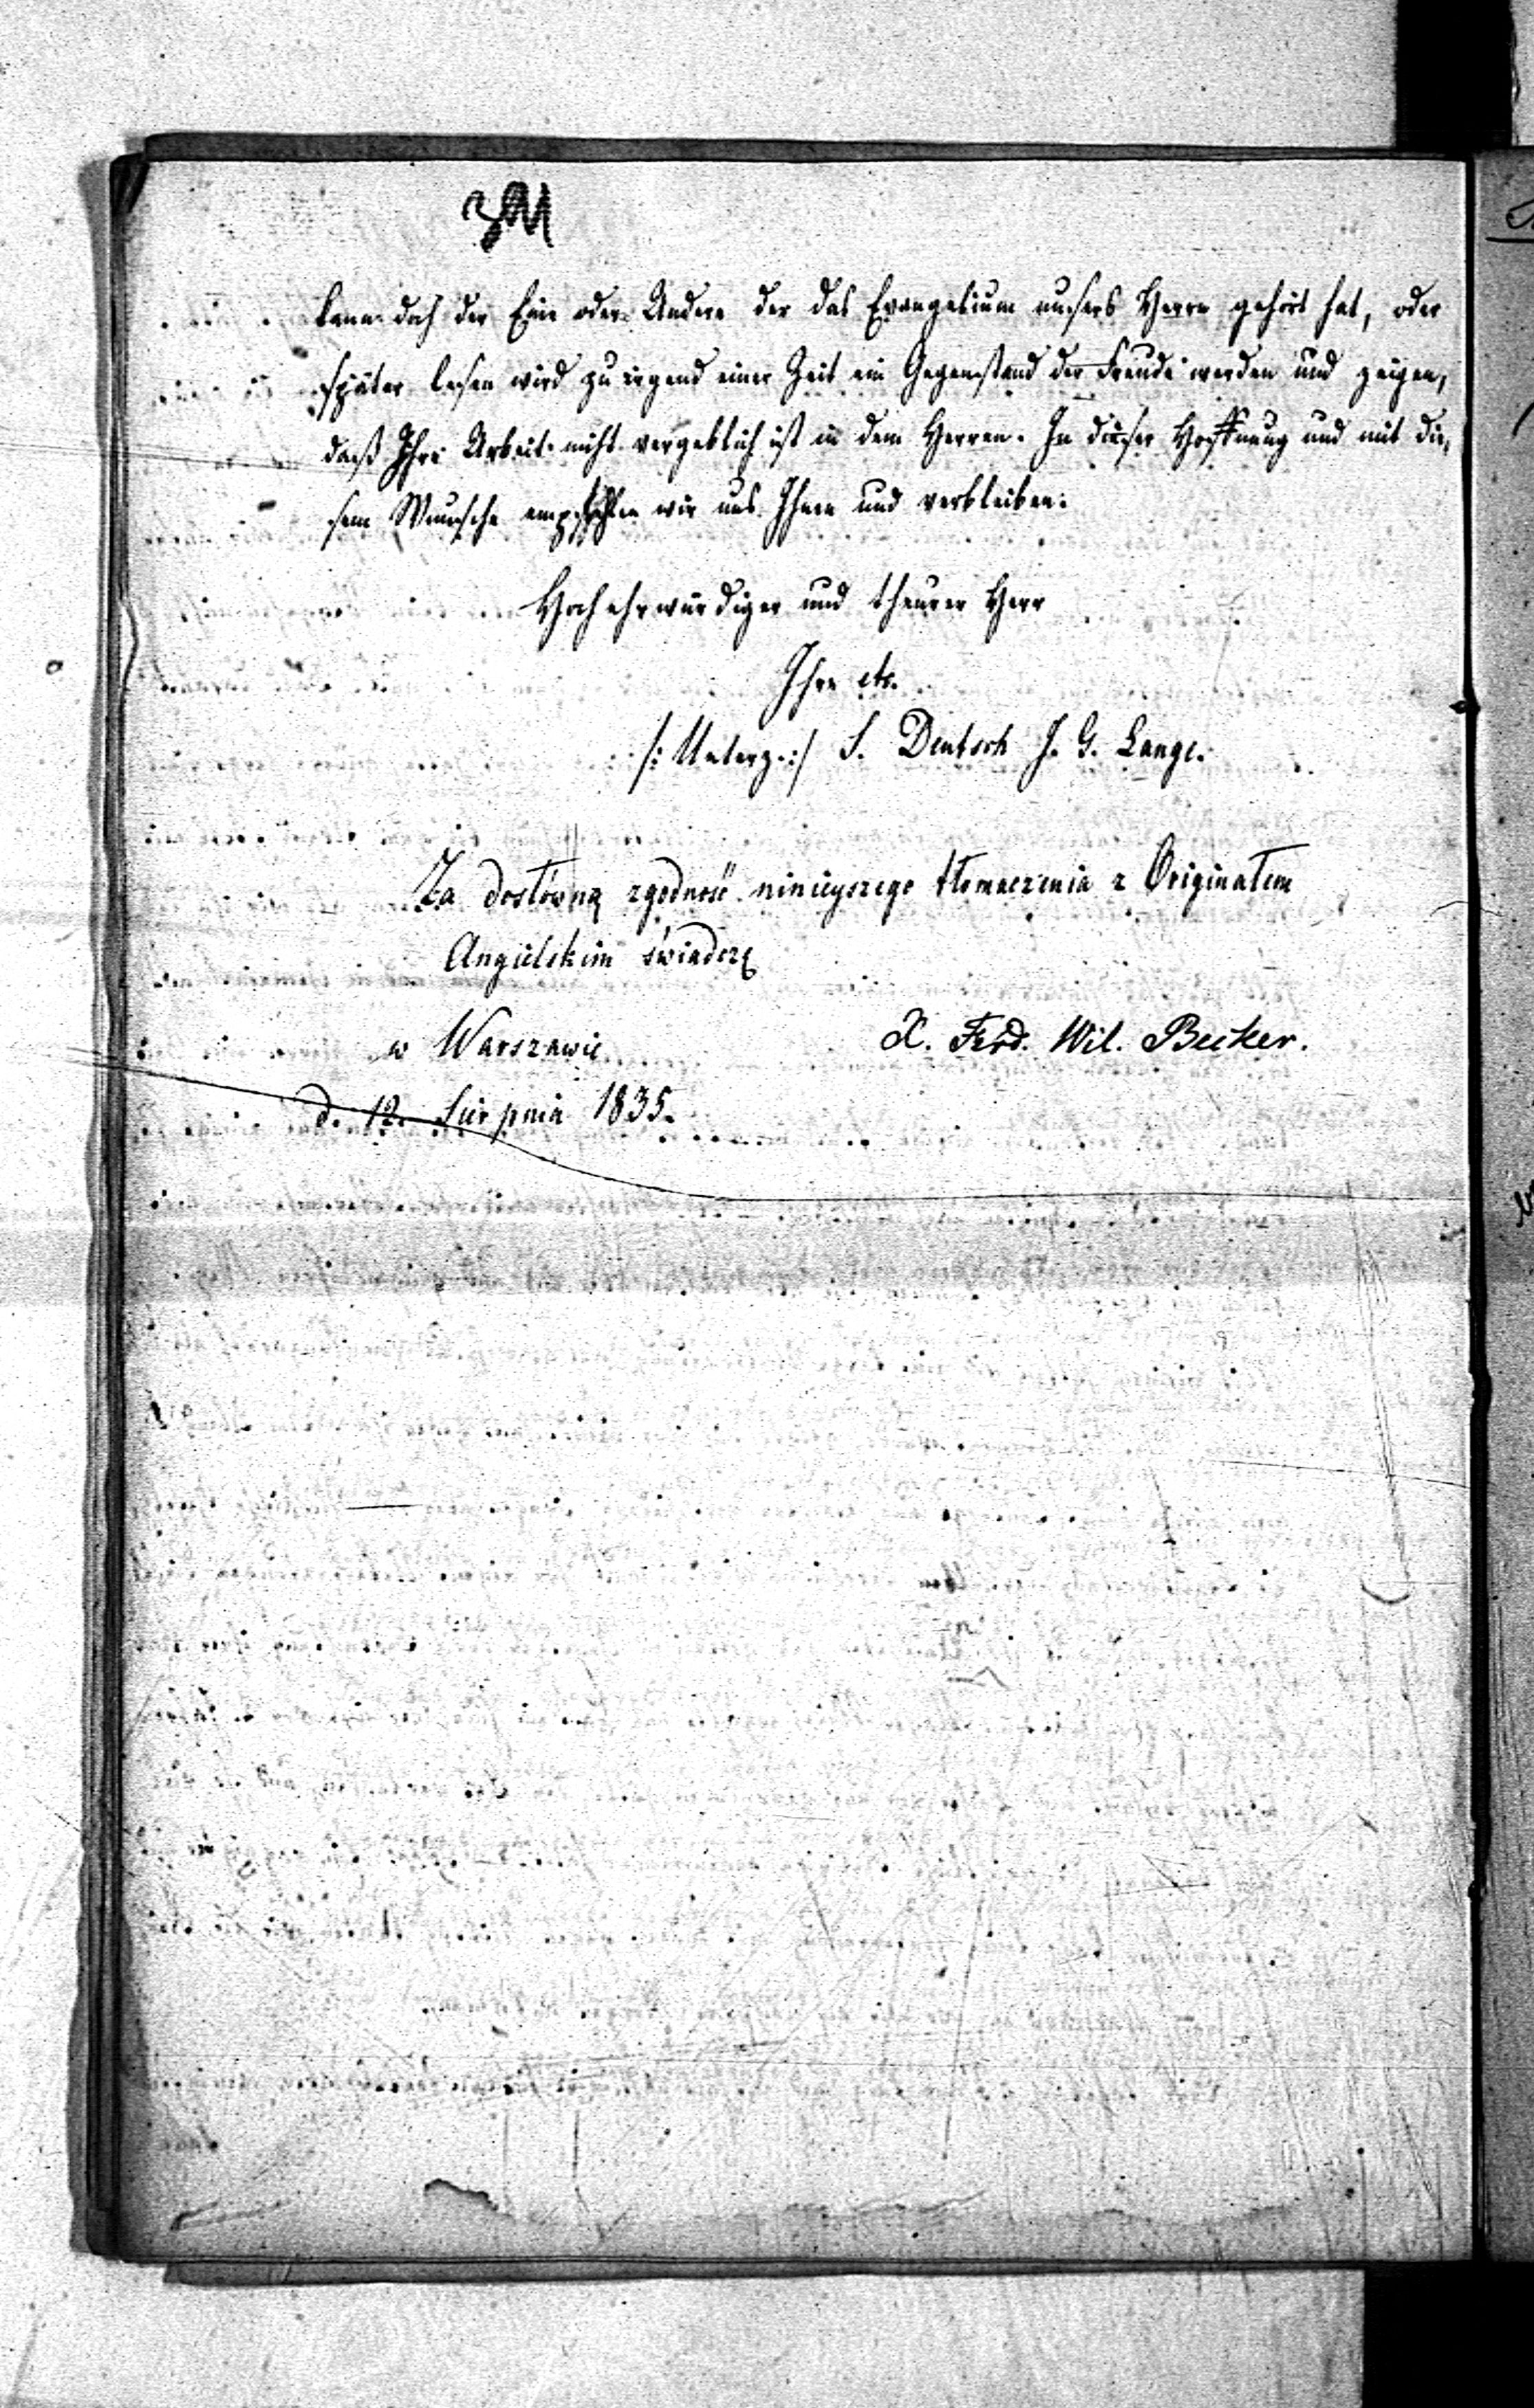 341
kann doch der Eine oder Andere der das Evangelium unsers Herrn gehört hat, oder
später lesen wird zu irgend einer Zeit ein Gegenstand der Freude werden und zeigen,
daß Ihre Arbeit nicht vergeblich ist in dem Herren. In dieser Hoffnung und mit die-
sem Wunsche empfehlen wir uns Ihnen und verbleiben.
Hochehrwürdiger und theurer Herr
Ihre etc.
/: Unterz. :/ S. Deutsch J. G. Lange.
Za dosłówną zgodność ninieyszego tłomaczenia z Originałem
Angielskim świadczę
w Warszawie
X. Ferd. Wil. Becker.
d. 12. Sierpnia 1835.